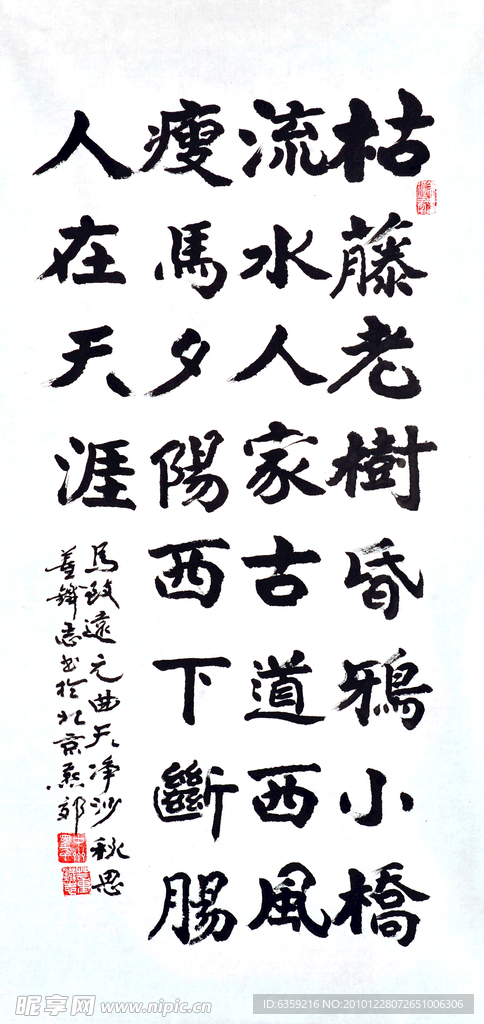 枯藤老樹昏鴉小橋
流水人家古道西風
瘦馬夕陽西下斷腸
人在天涯
馬致遠元曲天净沙秋思
書於北京燕郊
昵享网 www.nipic.cn
ID:6359216 NO:20101228072651006306